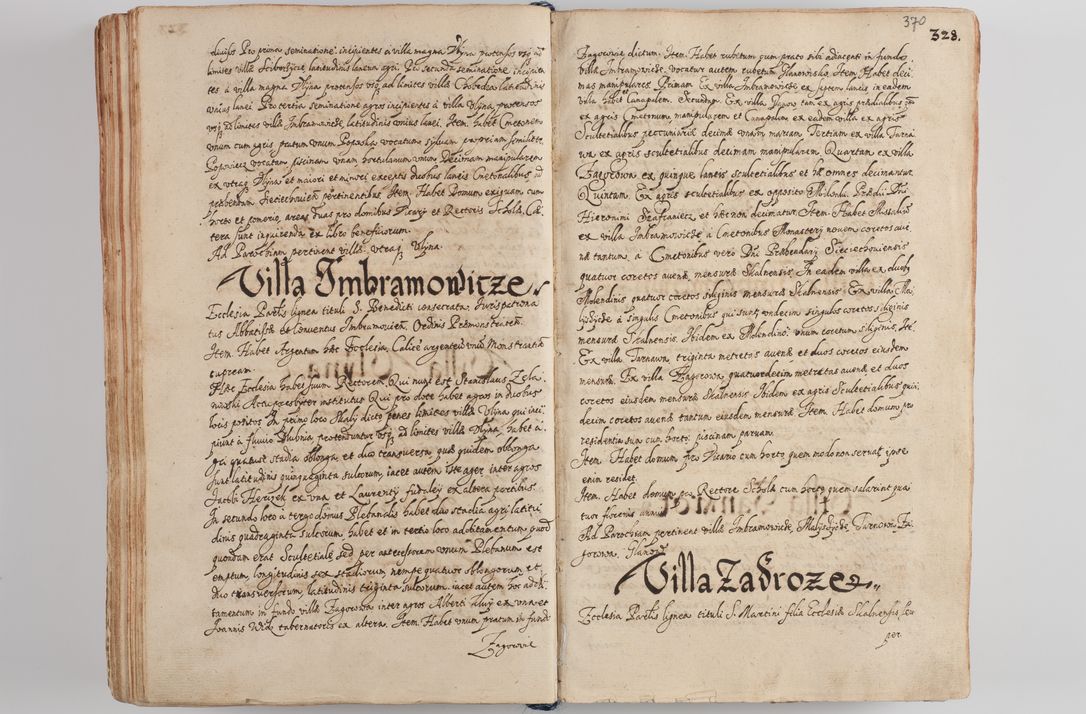 divisos Pro prima seminatione incipientes a villa magna Ulyna protensos usq ad
limites villæ Sciborzice latitudinis lanei agri. In secunda seminatione incipien
tes a villa magna Ulyna protensos usq ad limites villæ latitudinis
unius lanei Pro tertia seminatione agros incipientes a villa Ulyna protensos
usq ad limites villæ Imbramowicze, latitudinis unius lanei. Item habet Cmetonem
unum cum agris pratum unum Popowska vocatum sylvam propriam similiter
Popowiecz vocatam piscinam unam hortulanum unum Decimam manipularem
ex utraq Ulyna et maiori et minori exceptis duobus laneis Cmetonalibus ad
præbendam pertinentibus Item Habet Domum exiguam cum
horto et pomerio, areas duas pro domibus Vicarij et Rectoris Scholæ, Cæ
tera sunt inquirenda ex libro beneficiorum.
Ad Parochiam pertinent villæ utraq Ulyna.
Villa Imbramowicze
Ecclesia Parlis lignea tituli S. Benedicti consecrata, Iurispatrona
tus Abbatissæ et Conventus Imbramovicen Ordinis Præmonstraten.
Item Habet Argentum hæc Ecclesia, Calice argenteū unū Monstrantiā
cupream.
Hæc Ecclesia habet suum Rectorem Qui nunc est Stanislaus
Actu presbyter institutus Qui pro dote habet agros in duobus
locis positos In primo loco Skaly dicto penes limites villæ Ulyna qui inci
piunt a fluvio Dlubnia protenduntur usq ad limites villæ Ulyna, habet a
gri quatuor stadia oblonga et duo transversa, quæ quidem oblonga
sunt latitudinis quinquaginta sulcorum, iacet autem iste ager inter agros
Jacobi ex una et Laurentij ex altera partibus
In secundo loco a tergo domus Plebanalis habet duo stadia agri latitu
dinis quadraginta sulcorum, habet et in tertio loco additamentum quod
quondam erat Scultetiale sed per antecessorem unum Plebanum est
emptum, longitudinis sex stadiorum, nempe quatuor oblongorum et
duo transversorum, latitudinis triginta sulcorum. iacet autem hoc addi
tamentum in fundo villæ Zagorowa inter agros Alberti ex una et
Joannis tabernatoris ex altera. Item Habet unum pratum in fundo
Zagorovie
370
328.
Zagorovie dictum. Item Habet rubetum cum prato sibi adiacenti in fundo
villæ Imbramowicze, vocatur autem rubetum Item Habet deci
mas manipulares. Primam Ex villa Imbramowicze ex septem laneis in eadem
villa habet et Canapalem. Secundam Ex villa tam ex agris prædialibus quam
ex agris Cmetonum manipularem et Canapalem ex eadem villa ex agris
Scultetialibus pecuniariæ decimæ unam marcam Tertiam ex villa Tarna
wa ex agris scultetialibus decimam manipularem Quartam ex villa
Zagorowa ex quinque laneis scultetialibus et hæ omnes decimantur
Quintam Ex agris scultetialibus ex opposito Molendi. Prædii Dni
Hieronimi Szafraniecz et decimatur Item Habet Missalia
ex villa Imbramowicze a Cmetonibus Monasterij novem coretos ave
næ tantum, a Cmetonibus vero Dni Præbendarij Sieciechoviensis
quatuor coretos avenæ mensuræ Skalnensis. In eadem villa ex duobus
Molendinis quatuor coretos siliginis mensuræ Skalnensis Ex villa Ma
lyszicze à singulis Cmetonibus qui sunt undecim singulos coretos siliginis
mensuræ Skalnensis. Ibidem ex Molendino unum coretum siliginis, Ite
Ex villa Tarnawa triginta metretas avenæ et duos coretos eiusdem
mensuræ. Ex villa Zagorowa quatuordecim metretas avenæ et duos
coretos eiusdem mensuræ Skalnensis Ibidem ex agris Scultetialibus quin
decim coretos avenæ tantum eiusdem mensuræ Item Habet domum pro
residentia sua cum horto: piscinam parvam.
Item, Habet domum pro Vicario cum horto quem modo non servat ipse
enim residet
Item. Habet domum pro Rectore Scholæ cum horto quem salariat qua
tuor florenis
Ad Parochiam pertinent villæ Imbramowicze, Malyszycze, Tarnowa, Za
gorowa,
Villa Zadroze
Ecclesia Parlis lignea tituli S. Martini filia Ecclesiæ Skalnensis, seu
per